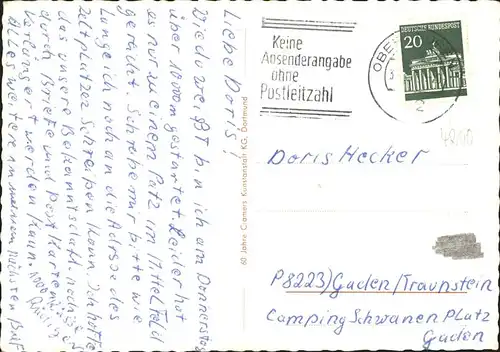 Liebe Doris!
Wie du weißt bin ich am Donnerstag
über 1000m gestartet. Leider hat
es nur zu einem Platz im Mittelfeld
gereicht. Schreibe mir bitte wie
lange ich noch an die Adresse des
Zeltplatzes Schreiben kann. Ich hoffe
das unsere Bekanntschaft noch
durch Briefe und Postkarten
Verlängert werden kann.
Alles weitere in meinem nächsten Brief
1000
60 Jahre Cramers Kunstanstalt KG, Dortmund
Keine
Absenderangabe
ohne
Postleitzahl
OBER
2
DEUTSCHE BUNDESPOST
20
Doris Hecker
P8223) Gaden/Traunstein
Camping Schwanen Platz
Gaden